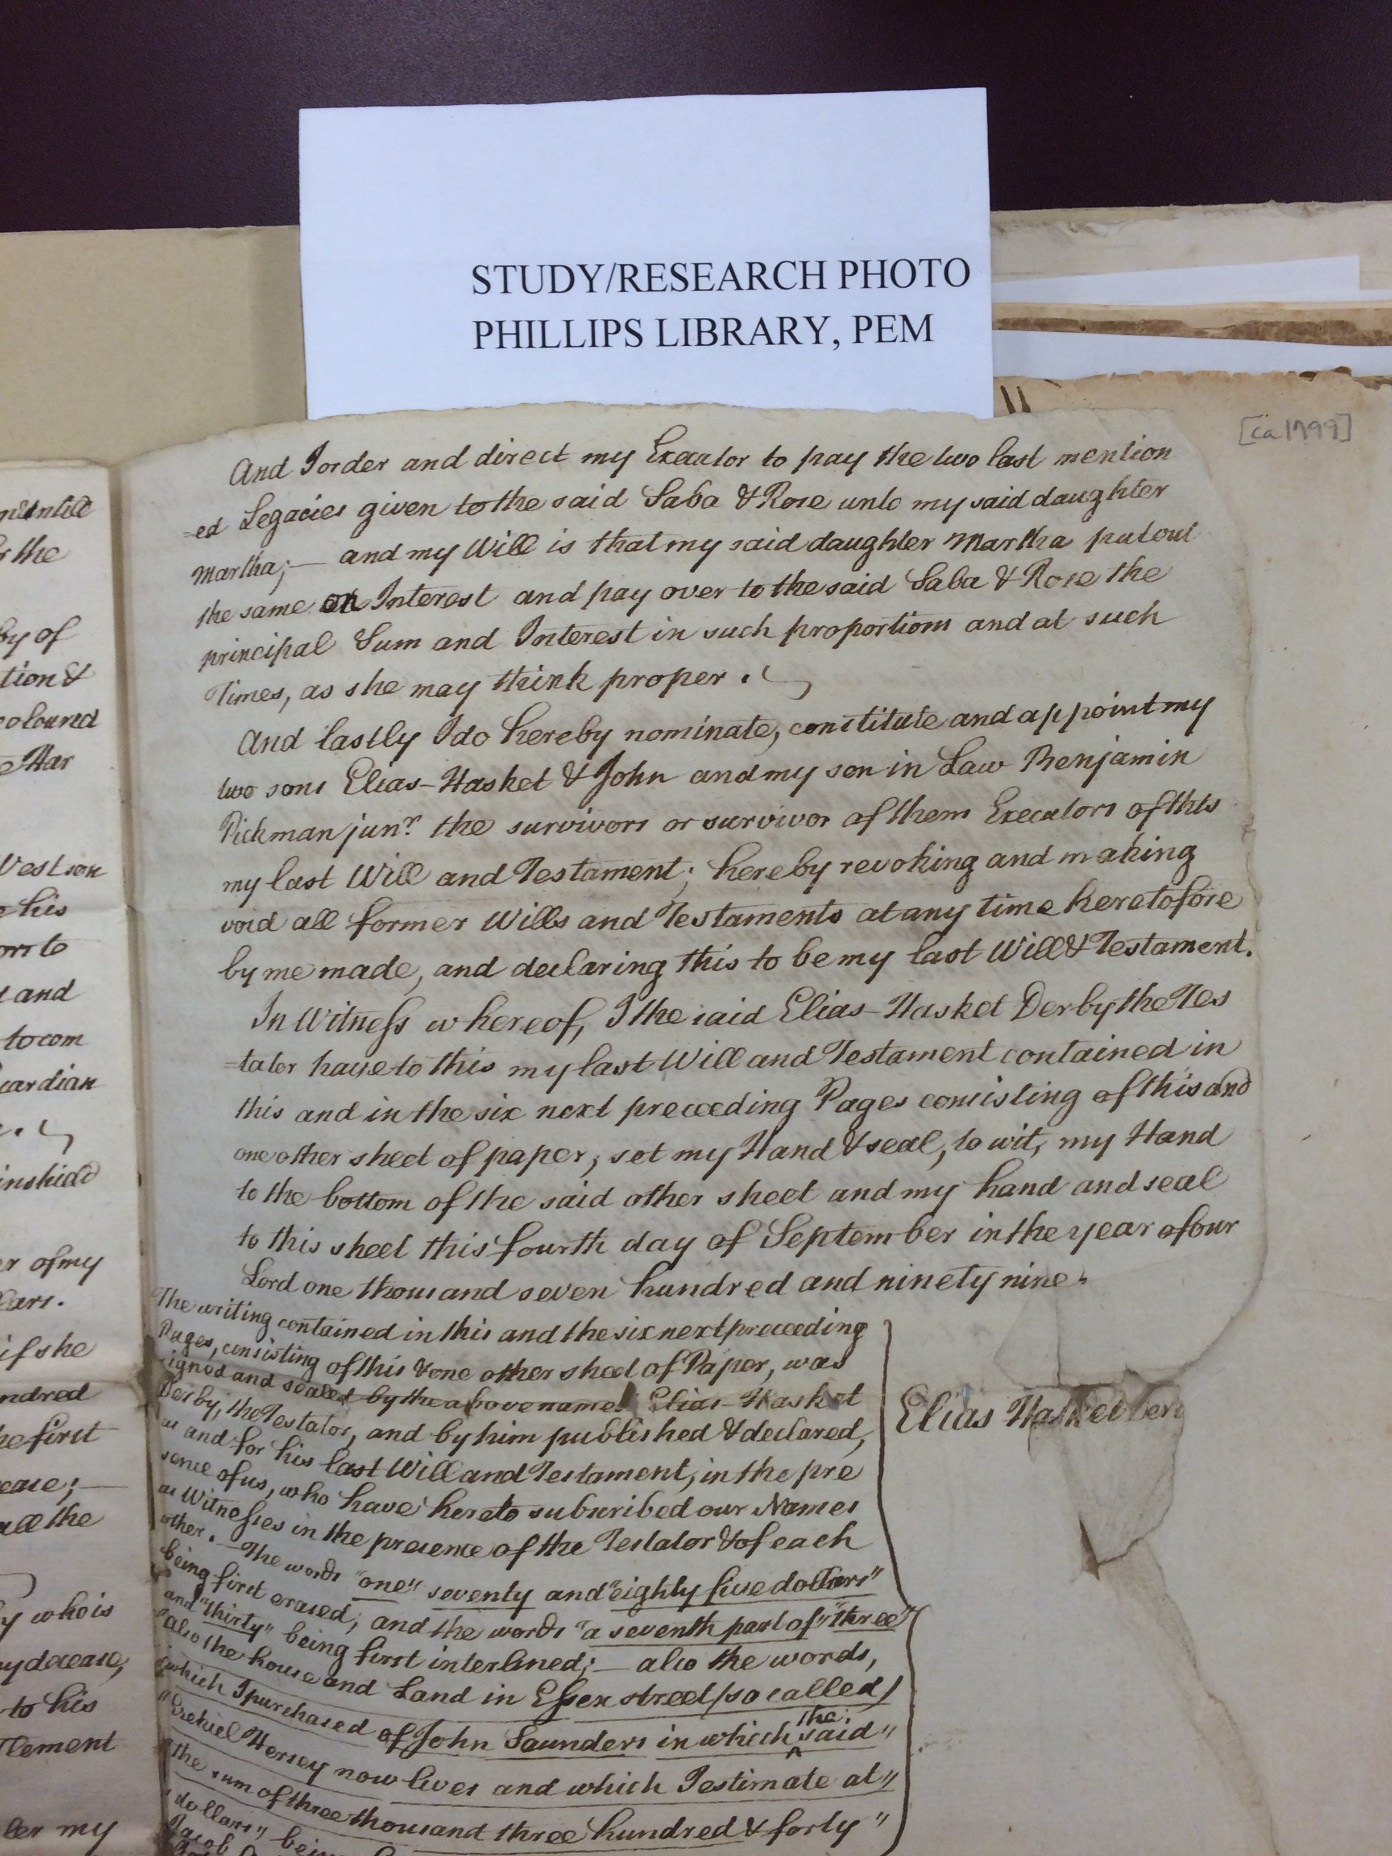 STUDY/RESEARCH PHOTO
PHILLIPS LIBRARY, PEM
[ca 1799]
And I order and direct my Executor to pay the two last mention
=ed Legacies given to the said Saba & Rose unto my said daughter
Martha;— and my Will is that my said daughter Martha put out
the same on Interest and pay over to the said Saba & Rose the
principal Sum and Interest in such proportions and at such
Times, as she may think proper.
And lastly I do hereby nominate, constitute and appoint my
two sons Elias-Hasket & John and my son in Law Benjamin
Pickman junr. the survivors or survivor of them Executors of this
my last Will and Testament; hereby revoking and making
void all former Wills and Testaments at any time heretofore
by me made, and declaring this to be my last Will & Testament.
In Witness whereof, I the said Elias-Hasket Derby the Tes
=tator have to this my last Will and Testament contained in
this and in the six next preceeding Pages consisting of this and
one other sheet of paper, set my Hand & seal, to wit, my Hand
to the bottom of the said other sheet and my hand and seal
to this sheet this fourth day of September in the year of our
Lord one thousand seven hundred and ninety nine.
The writing contained in this and the six next preceeding
Pages, consisting of this & one other sheet of Paper, was
signed and sealed by the above named Elias-Hasket
Derby, the Testator, and by him published & declared,
as and for his last Will and Testament, in the pre
sence of us, who have hereto subscribed our Names
as Witnesses in the presence of the Testator & of each
other.—The words "one" seventy and "eighty five dollars"
being first erased, and the words "a seventh part of" "three"
and "thirty" being first interlined;— also the words,
"also the house and Land in Essex street (so called)
"which I purchased of John Saunders in which the said"
"Ezekiel Hersey now lives and which I estimate at"
"the sum of three thousand three hundred & forty"
"dollars" being
Jacob
Elias Hasket Derby
ed
or the
by of
tion &
coloured
e Har
West son
e his
ors to
and
to com
uardian
er of my
Years.
if she
undred
he first
cease;—
all the
y who is
my decease,
to his
tlement
der my